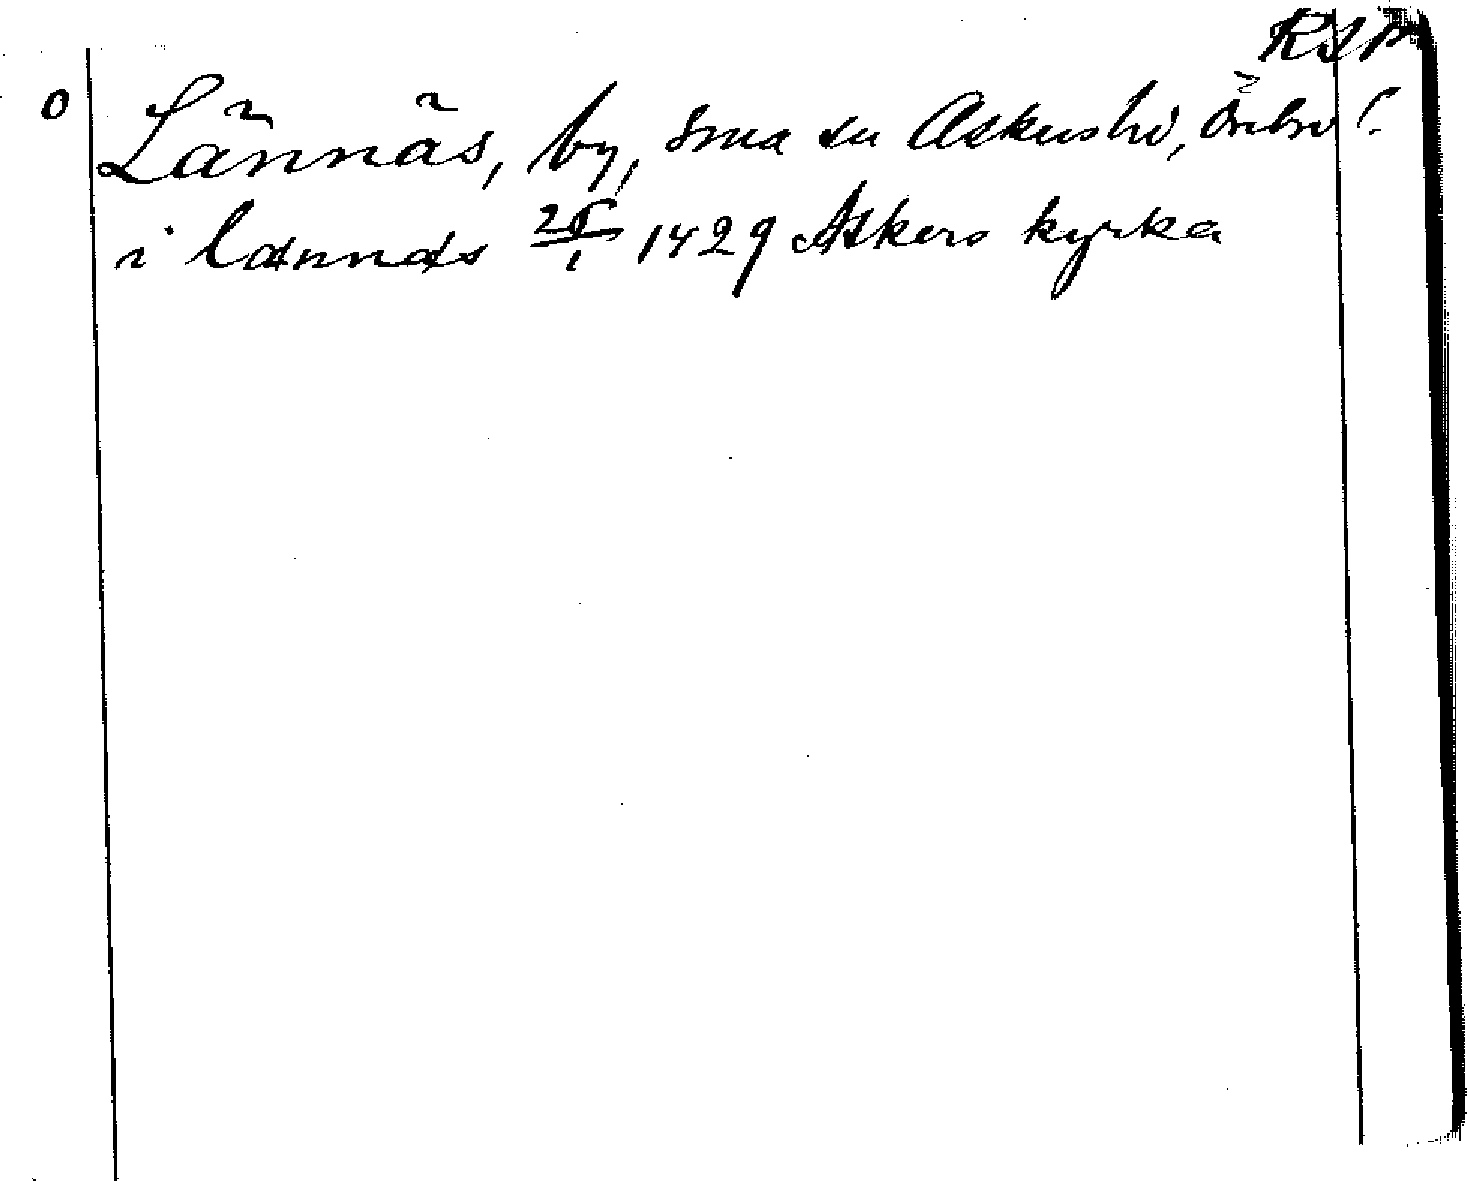 RSA
o Lännäs, by, sma sn Askers hd, Örebro l.
i Lænnæs 25/1 1429 Askers kyrka